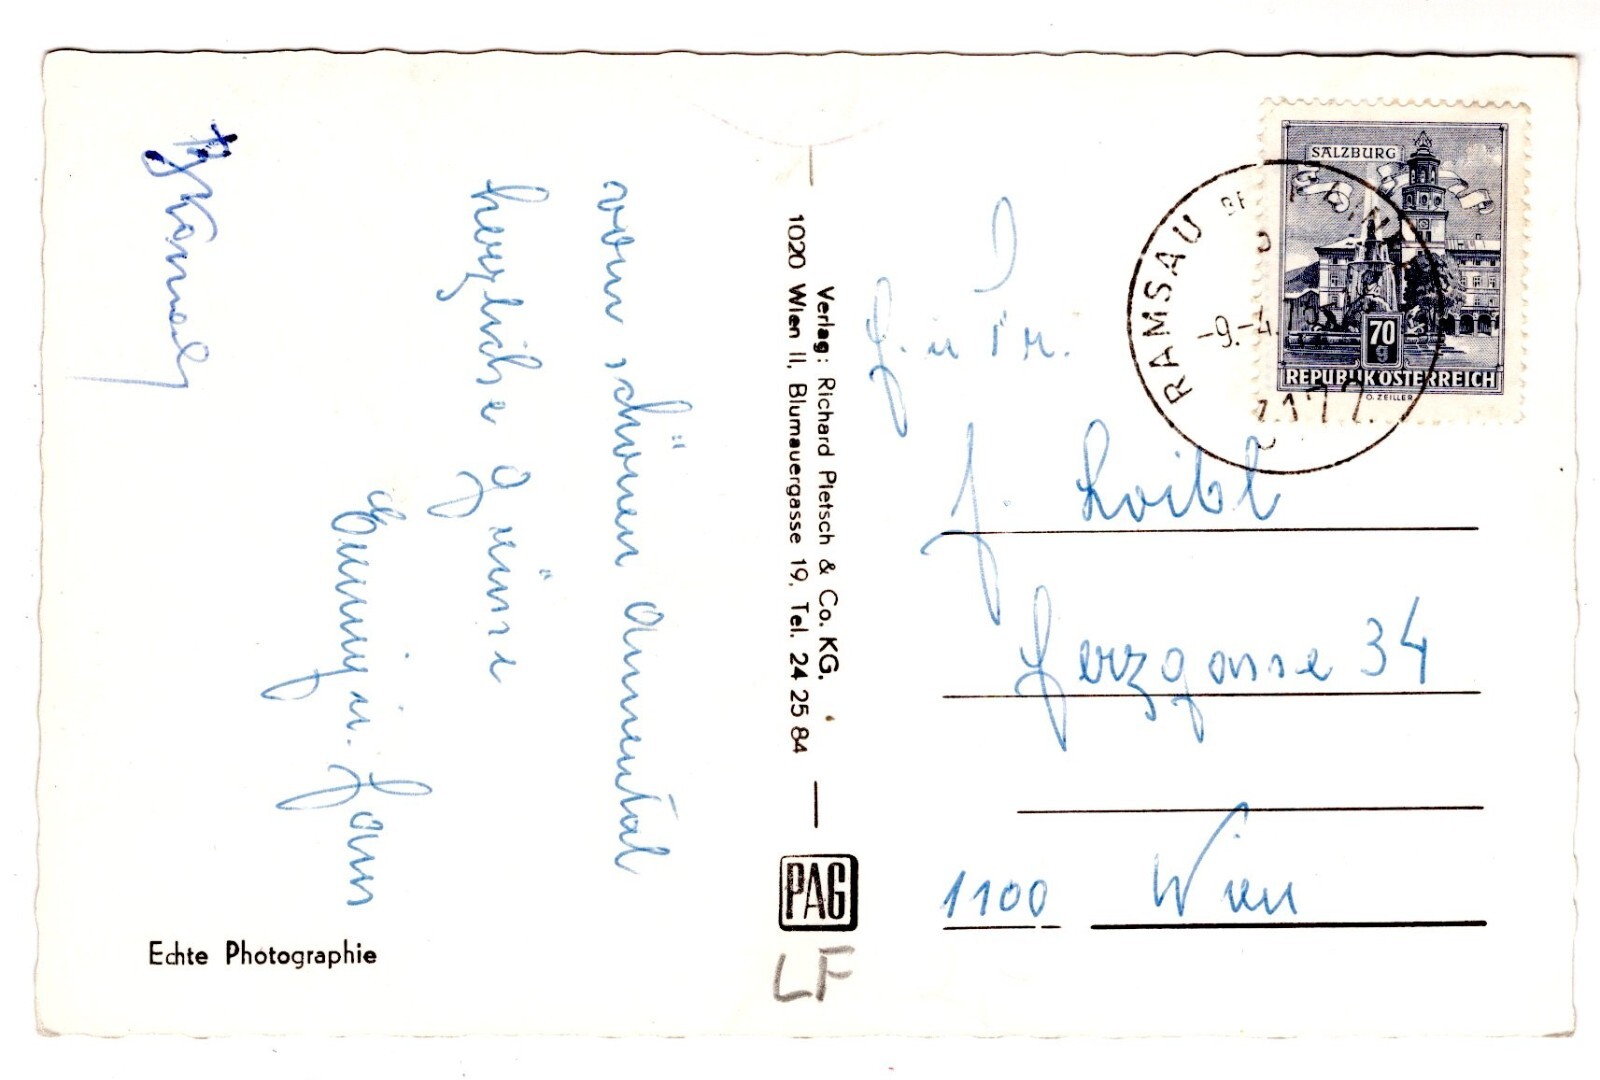 vom schönen Ramsautal
herzliche Grüsse
Emmy u. Hans
Verlag: Richard Pietsch & Co. KG.
1020 Wien II, Blumauergasse 19, Tel. 24 25 84
PAG
LF
Echte Photographie
SALZBURG
70
g
REPUBLIK ÖSTERREICH
O. ZEILLER
RAMSAU
-9.-4.
J. Loibl
Herzgasse 34
1100 Wien